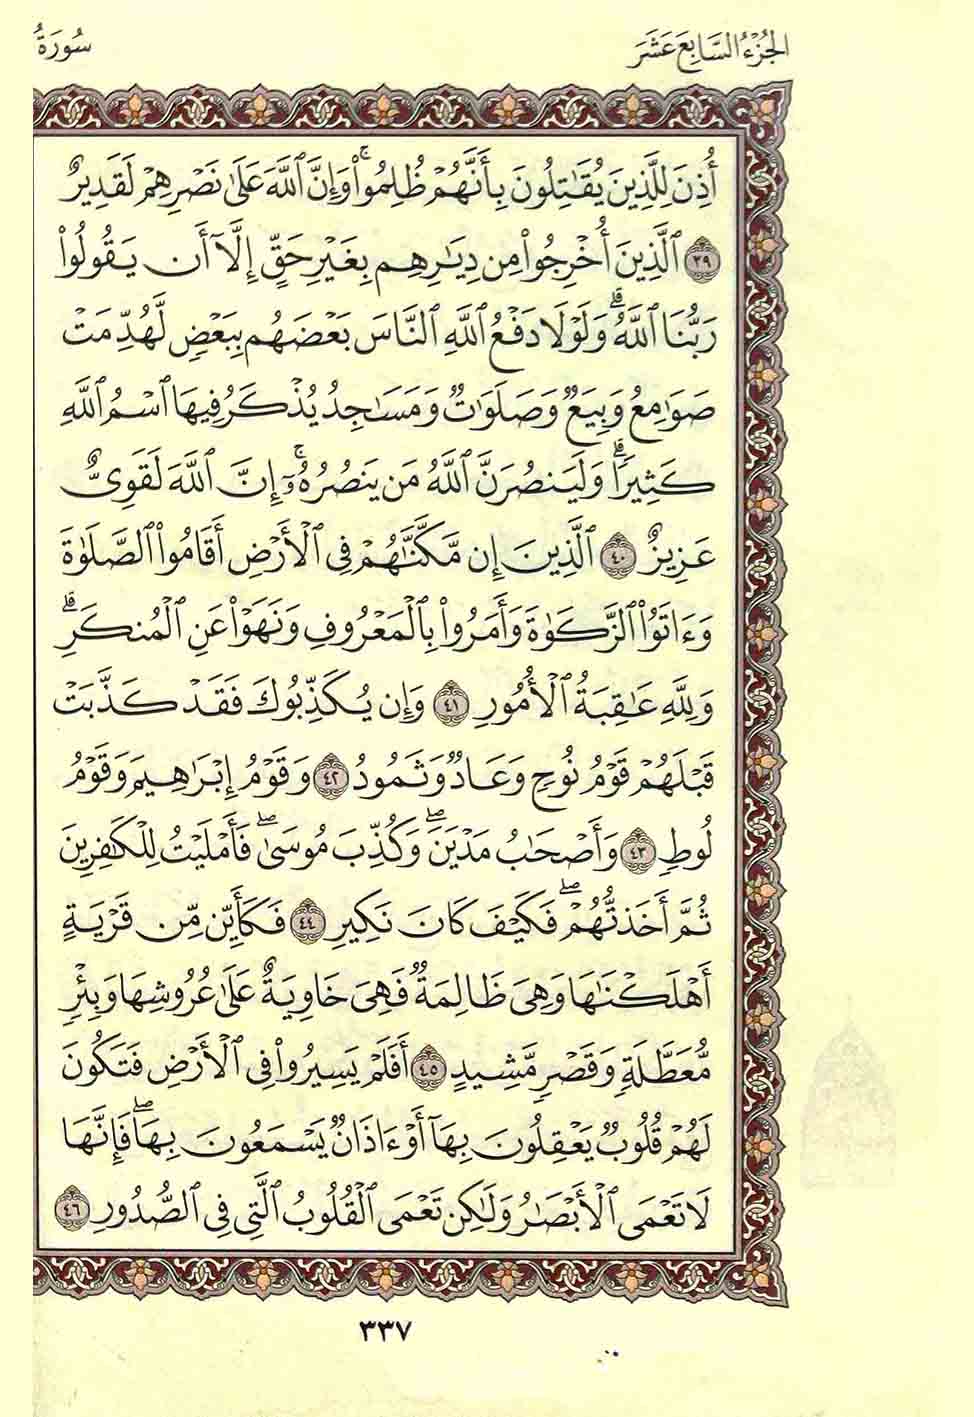 الجُزْءُ السَّابِعَ عَشَرَ
سُورَةُ
أُذِنَ لِلَّذِينَ يُقَٰتَلُونَ بِأَنَّهُمْ ظُلِمُوا۟ ۚ وَإِنَّ ٱللَّهَ عَلَىٰ نَصْرِهِمْ لَقَدِيرٌ
٣٩ ٱلَّذِينَ أُخْرِجُوا۟ مِن دِيَٰرِهِم بِغَيْرِ حَقٍّ إِلَّآ أَن يَقُولُوا۟
رَبُّنَا ٱللَّهُ ۗ وَلَوْلَا دَفْعُ ٱللَّهِ ٱلنَّاسَ بَعْضَهُم بِبَعْضٍ لَّهُدِّمَتْ
صَوَٰمِعُ وَبِيَعٌ وَصَلَوَٰتٌ وَمَسَٰجِدُ يُذْكَرُ فِيهَا ٱسْمُ ٱللَّهِ
كَثِيرًا ۗ وَلَيَنصُرَنَّ ٱللَّهُ مَن يَنصُرُهُۥٓ ۚ إِنَّ ٱللَّهَ لَقَوِىٌّ
عَزِيزٌ ٤٠ ٱلَّذِينَ إِن مَّكَّنَّٰهُمْ فِى ٱلْأَرْضِ أَقَامُوا۟ ٱلصَّلَوٰةَ
وَءَاتَوُا۟ ٱلزَّكَوٰةَ وَأَمَرُوا۟ بِٱلْمَعْرُوفِ وَنَهَوْا۟ عَنِ ٱلْمُنكَرِ ۗ
وَلِلَّهِ عَٰقِبَةُ ٱلْأُمُورِ ٤١ وَإِن يُكَذِّبُوكَ فَقَدْ كَذَّبَتْ
قَبْلَهُمْ قَوْمُ نُوحٍ وَعَادٌ وَثَمُودُ ٤٢ وَقَوْمُ إِبْرَٰهِيمَ وَقَوْمُ
لُوطٍ ٤٣ وَأَصْحَٰبُ مَدْيَنَ ۖ وَكُذِّبَ مُوسَىٰ ۖ فَأَمْلَيْتُ لِلْكَٰفِرِينَ
ثُمَّ أَخَذتُّهُمْ ۖ فَكَيْفَ كَانَ نَكِيرِ ٤٤ فَكَأَيِّن مِّن قَرْيَةٍ
أَهْلَكْنَٰهَا وَهِىَ ظَالِمَةٌ فَهِىَ خَاوِيَةٌ عَلَىٰ عُرُوشِهَا وَبِئْرٍ
مُّعَطَّلَةٍ وَقَصْرٍ مَّشِيدٍ ٤٥ أَفَلَمْ يَسِيرُوا۟ فِى ٱلْأَرْضِ فَتَكُونَ
لَهُمْ قُلُوبٌ يَعْقِلُونَ بِهَآ أَوْ ءَاذَانٌ يَسْمَعُونَ بِهَا ۖ فَإِنَّهَا
لَا تَعْمَى ٱلْأَبْصَٰرُ وَلَٰكِن تَعْمَى ٱلْقُلُوبُ ٱلَّتِى فِى ٱلصُّدُورِ ٤٦
٣٣٧